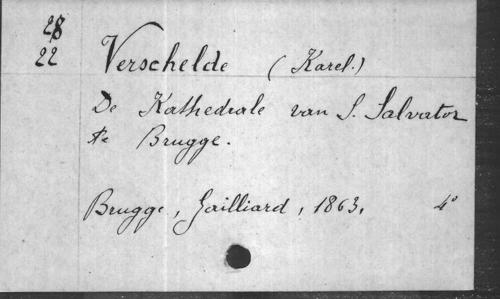 28
22 Verschelde (Karel.)
De Kathedrale van S. Salvator
te Brugge.
Brugge, Gailliard, 1863, 4°